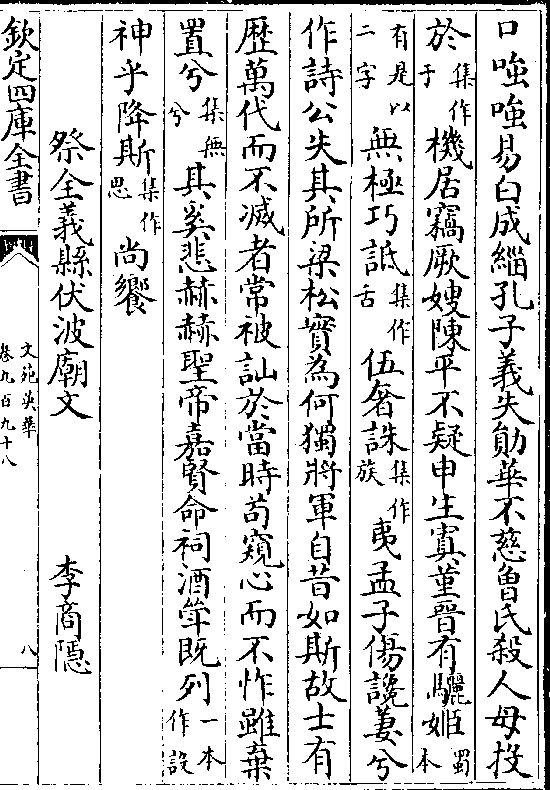 口嗤嗤易白成緇孔子義失勛華不慈魯氏殺人母投
於集作于機居竊厥嫂陳平不疑申生寘堇晉有驪姬蜀本
有是以二字無極巧詆集作舌伍奢誅集作族夷孟子傷讒萋兮
作詩公失其所梁松實為何獨將軍自昔如斯故士有
歴萬代而不滅者常被訕於當時苟窺心而不怍雖棄
置兮集無兮其奚悲赫赫聖帝嘉賢命祠酒斚既列一本作設
神乎降斯集作思尚饗
祭全義縣伏波廟文 李商隱
欽定四庫全書
文苑英華
卷九百九十八
八